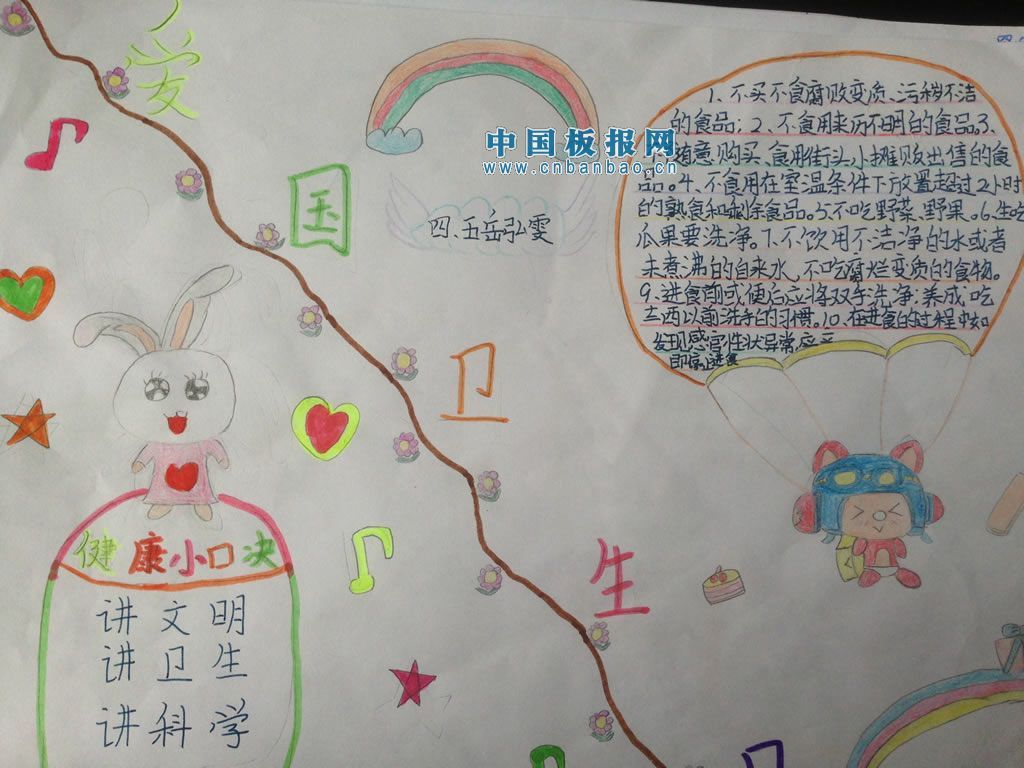 爱
国
卫
生
中国板报网
www.cnbanbao.cn
四、五岳弘雯
1、不买不食腐败变质、污秽不洁
的食品;2、不食用来历不明的食品。3、
随意购买、食用街头小摊贩出售的食
品。4、不食用在室温条件下放置超过2小时
的熟食和剩余食品。5、不吃野菜、野果。6、生吃
瓜果要洗净。7、不饮用不洁净的水或者
未煮沸的自来水,不吃腐烂变质的食物。
9、进食前或便后应将双手洗净;养成吃
东西以前洗手的习惯。10、在进食的过程中如
发现感官性状异常应立
即停止进食
健康小口决
讲文明
讲卫生
讲科学